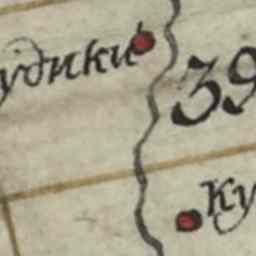 удики
39
Ку